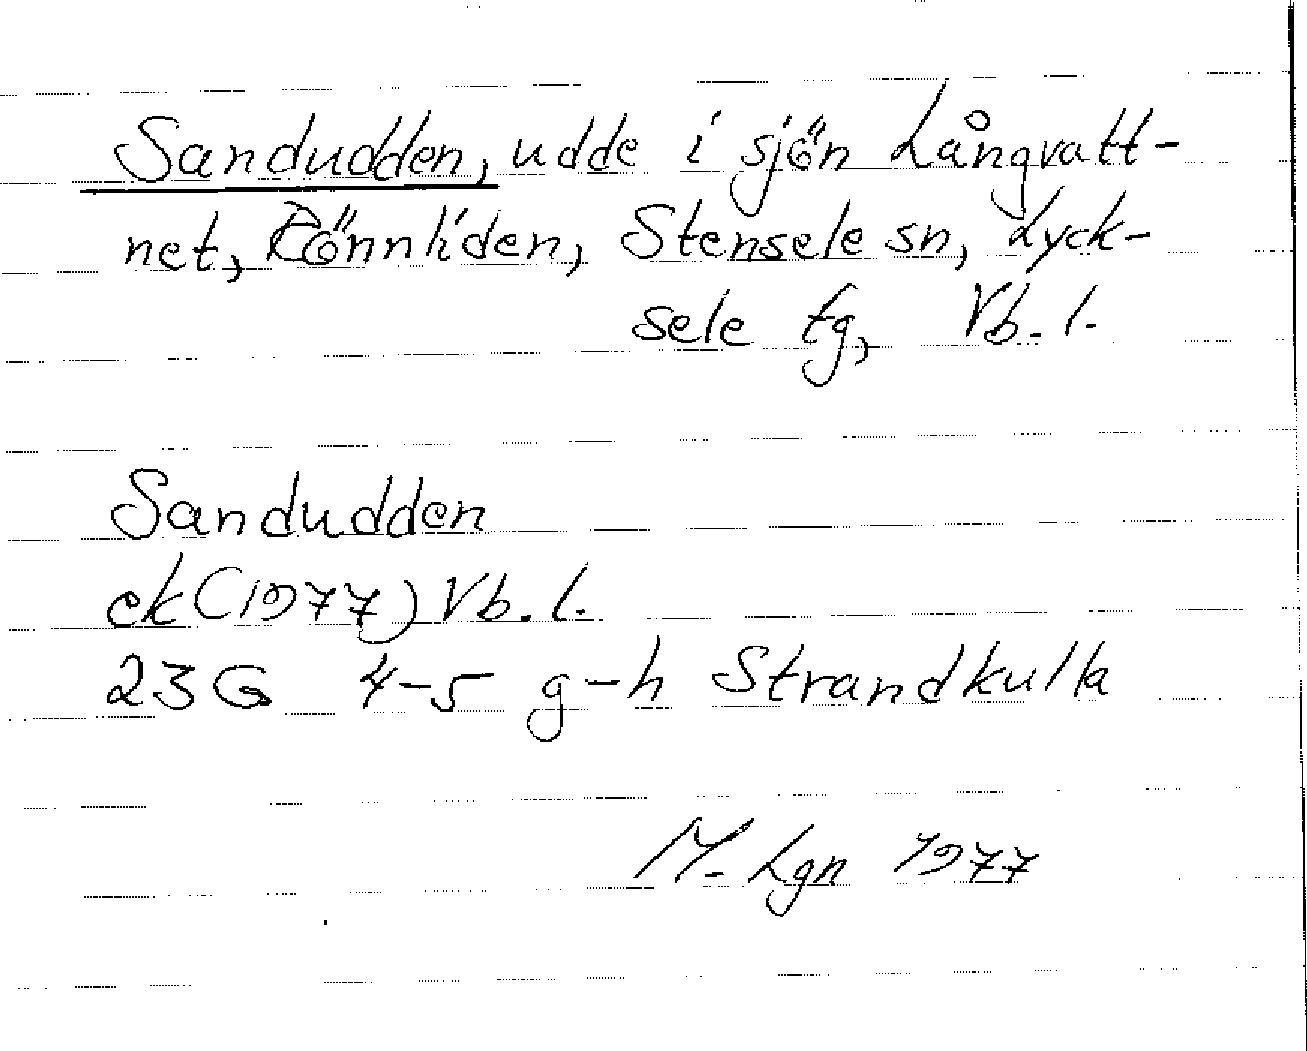 Sandudden, udde i sjön Långvatt-
net, Rönnliden, Stensele sn, Lyck-
sele tg, Vb. l.
Sandudden
ek (1977) Vb. l.
23 G 4-5 g-h Strandkulla
M. Lgn 1977